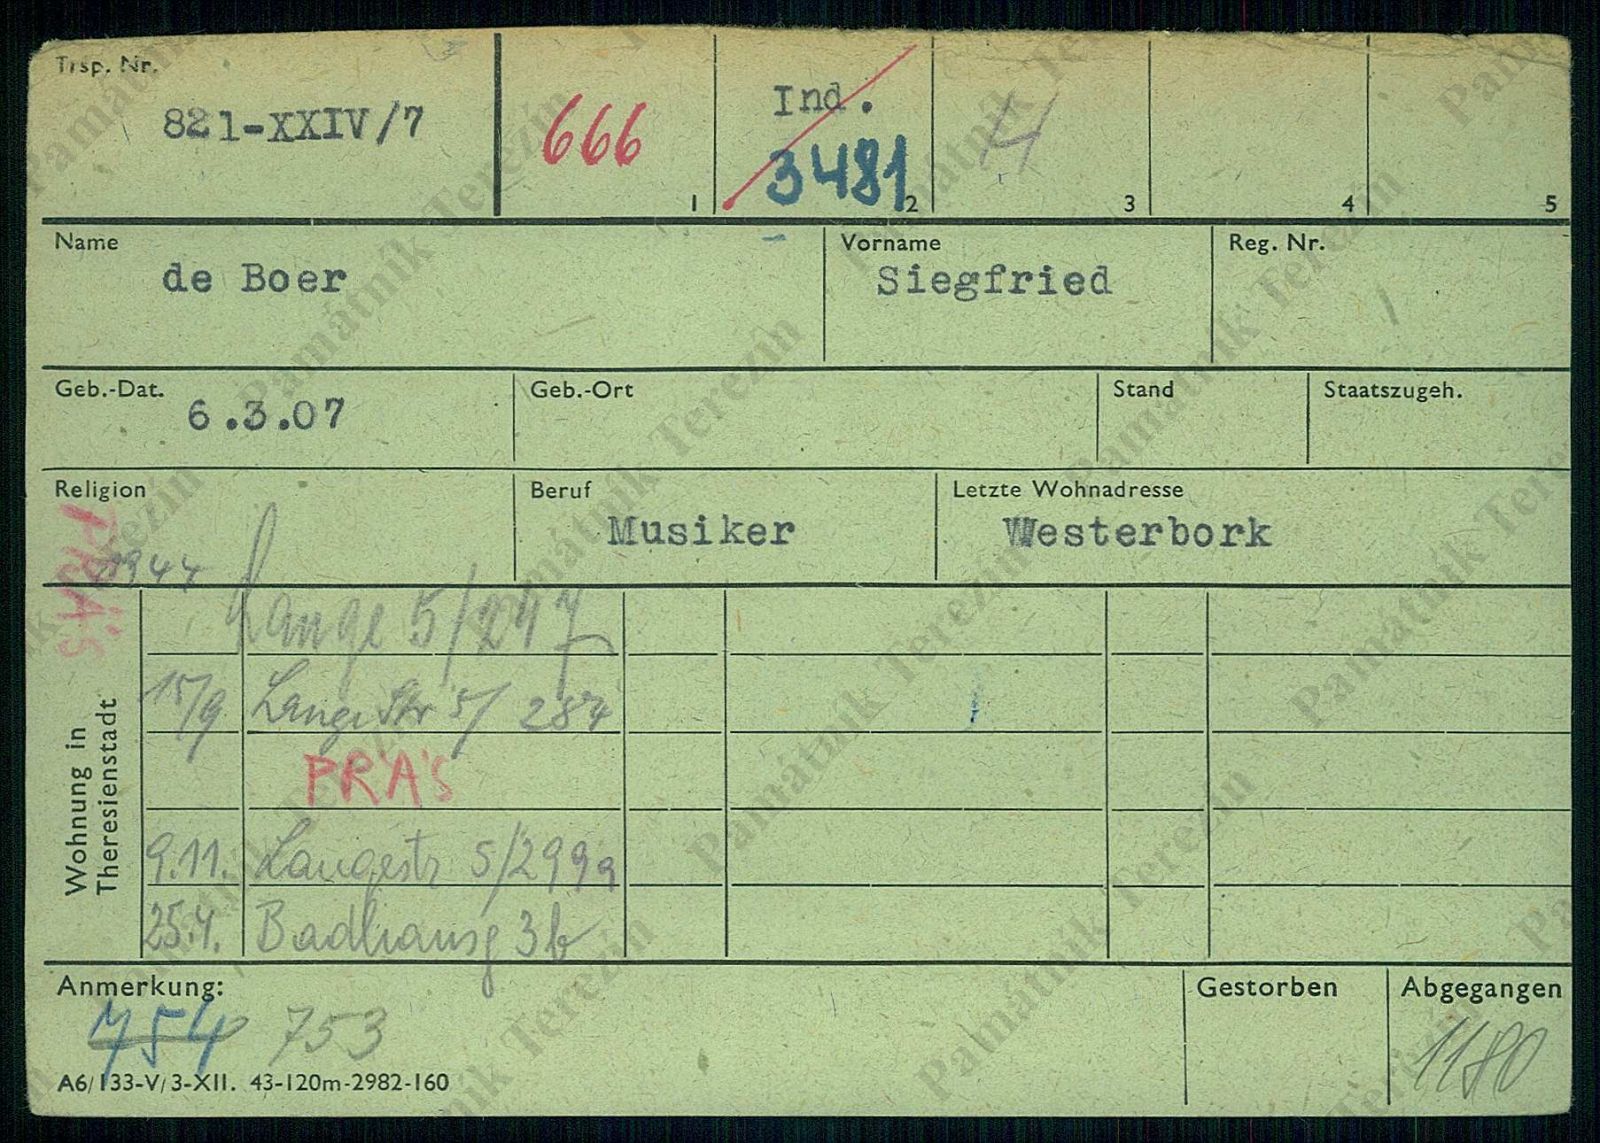 Trsp. Nr.
821-XXIV/7
666
Ind.
3481
4
1 2 3 4 5
Name
de Boer
Vorname
Siegfried
Reg. Nr.
Geb.-Dat.
6.3.07
Geb.-Ort
Stand
Staatszugeh.
Religion
Beruf
Musiker
Letzte Wohnadresse
Westerbork
PRÄS
1944
Wohnung in
Theresienstadt
Lange 5/247
15/9 Lange Str 5/ 287
PRÄS
9.11. Langestr 5/299a
25.4. Badhausg 3b
Anmerkung:
754 753
Gestorben
Abgegangen
1180
A6/133-V/3-XII. 43-120m-2982-160
Památník Terezín